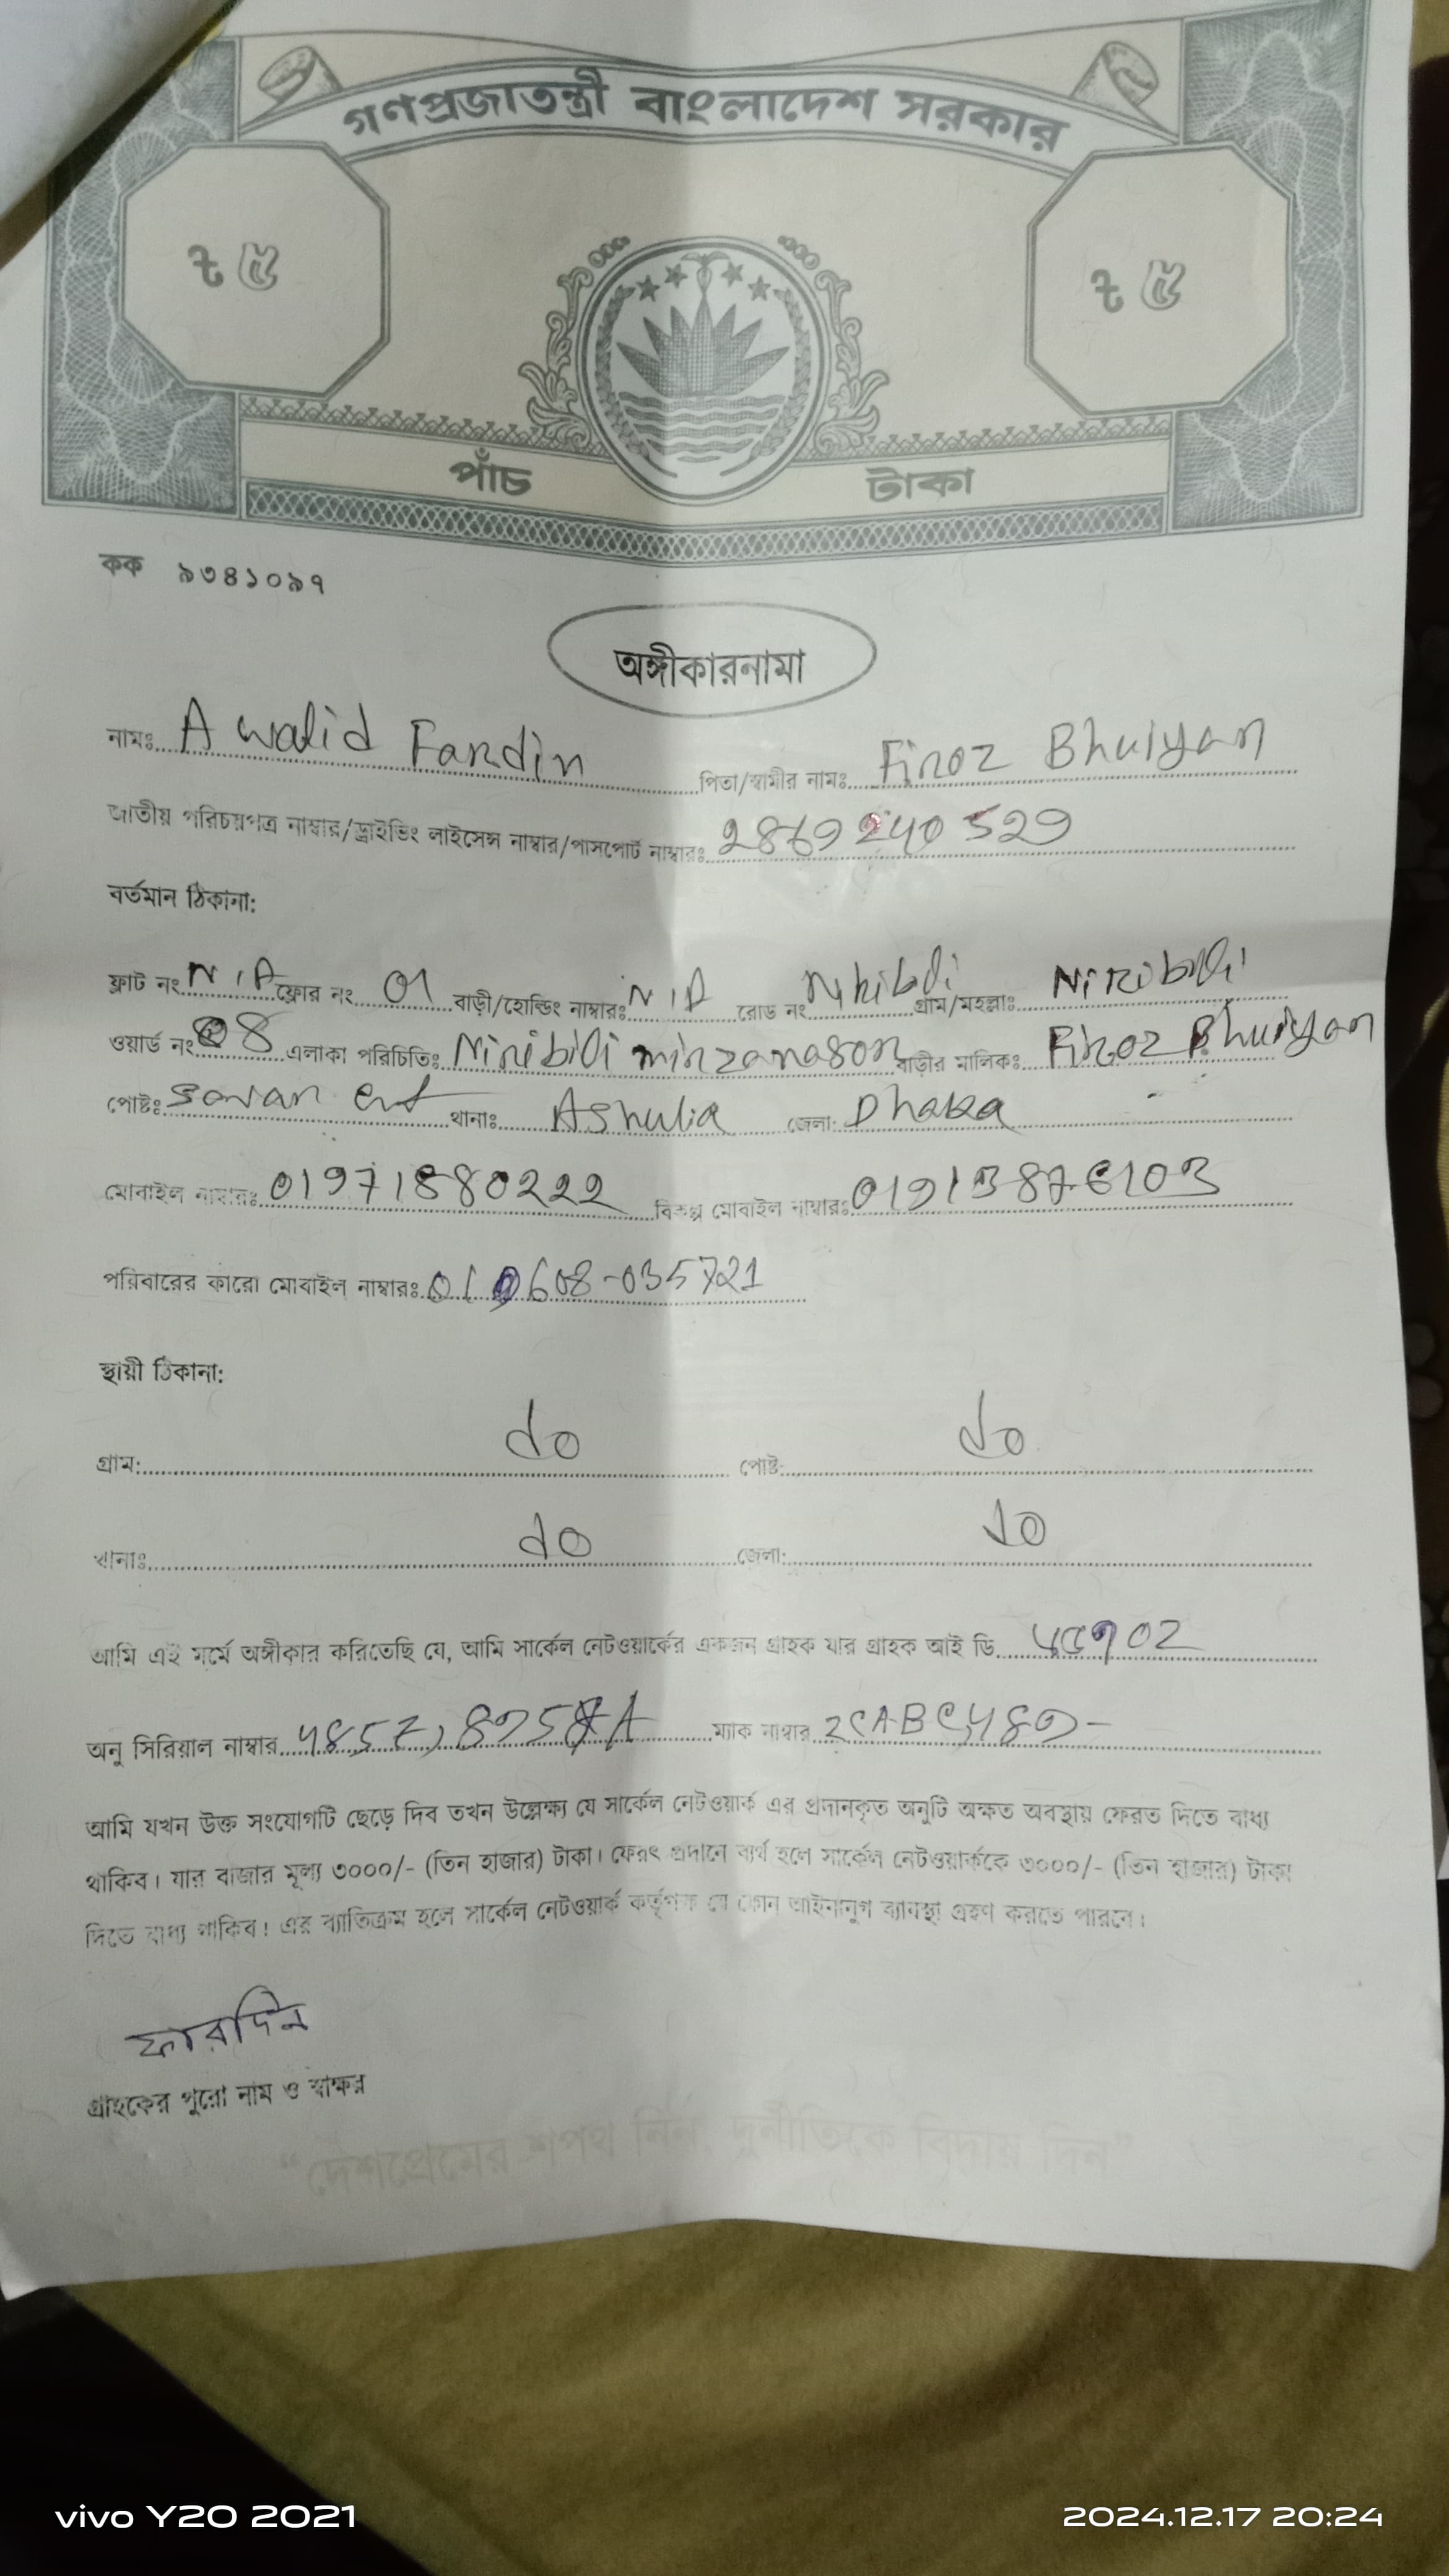 গণপ্রজাতন্ত্রী বাংলাদেশ সরকার
৳ ৫ ৳ ৫
পাঁচ টাকা
কক ৯৩৪১০৯৭
অঙ্গীকারনামা
নামঃ A walid Fardin পিতা/স্বামীর নামঃ Firoz Bhuiyan
জাতীয় পরিচয়পত্র নাম্বার/ড্রাইভিং লাইসেন্স নাম্বার/পাসপোর্ট নাম্বারঃ 2869240529
বর্তমান ঠিকানা:
ফ্লাট নং N/A ফ্লোর নং 01 বাড়ী/হোল্ডিং নাম্বারঃ N/A রোড নং Niribili গ্রাম/মহল্লাঃ Niribili
ওয়ার্ড নং 08 এলাকা পরিচিতিঃ Niribili বাড়ীর মালিকঃ Firoz Bhuiyan
পোষ্টঃ savar থানাঃ Ashulia জেলা: Dhaka
মোবাইল নাম্বারঃ 01971880222 বিকল্প মোবাইল নাম্বারঃ
পরিবারের কারো মোবাইল নাম্বারঃ
স্থায়ী ঠিকানা:
গ্রাম: do পোষ্ট: do
থানাঃ do জেলা: do
আমি এই মর্মে অঙ্গীকার করিতেছি যে, আমি সার্কেল নেটওয়ার্কের একজন গ্রাহক যার গ্রাহক আই ডি
অনু সিরিয়াল নাম্বার ম্যাক নাম্বার
আমি যখন উক্ত সংযোগটি ছেড়ে দিব তখন উল্লেক্ষ্য যে সার্কেল নেটওয়ার্ক এর প্রদানকৃত অনুটি অক্ষত অবস্থায় ফেরত দিতে বাধ্য
থাকিব। যার বাজার মূল্য ৩০০০/- (তিন হাজার) টাকা। ফেরৎ প্রদানে ব্যর্থ হলে সার্কেল নেটওয়ার্ককে ৩০০০/- (তিন হাজার) টাকা
দিতে বাধ্য থাকিব! এর ব্যাতিক্রম হলে সার্কেল নেটওয়ার্ক কর্তৃপক্ষ যে কোন আইনানুগ ব্যাবস্থা গ্রহণ করতে পারবে।
ফারদিন
গ্রাহকের পুরো নাম ও স্বাক্ষর
“দেশপ্রেমের শপথ নিন, দুর্নীতিকে বিদায় দিন”
vivo Y20 2021 2024.12.17 20:24